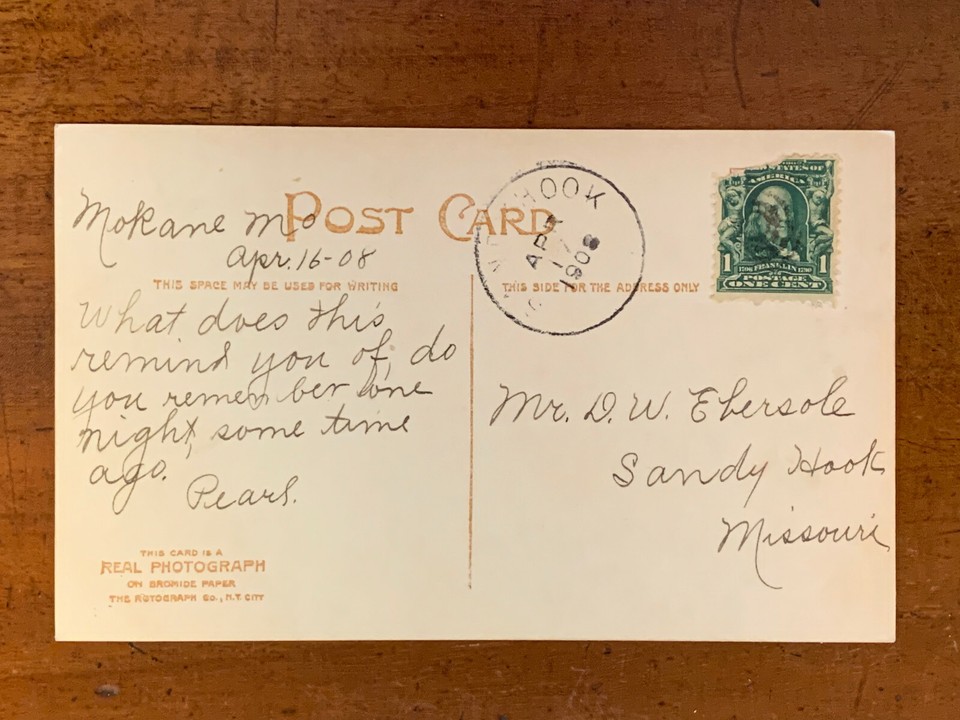 POST CARD
Mokane Mo
Apr. 16-08
THIS SPACE MAY BE USED FOR WRITING
What does this
remind you of, do
you remember one
night, some time
ago.
Pearl.
THIS CARD IS A
REAL PHOTOGRAPH
ON BROMIDE PAPER
THE ROTOGRAPH CO., N.Y. CITY
HOOK
APR
17
1908
STATES OF
AMERICA
1706 FRANKLIN 1790
1 1
POSTAGE
ONE CENT
THIS SIDE FOR THE ADDRESS ONLY
Mr. D. W. Ebersole
Sandy Hook
Missouri